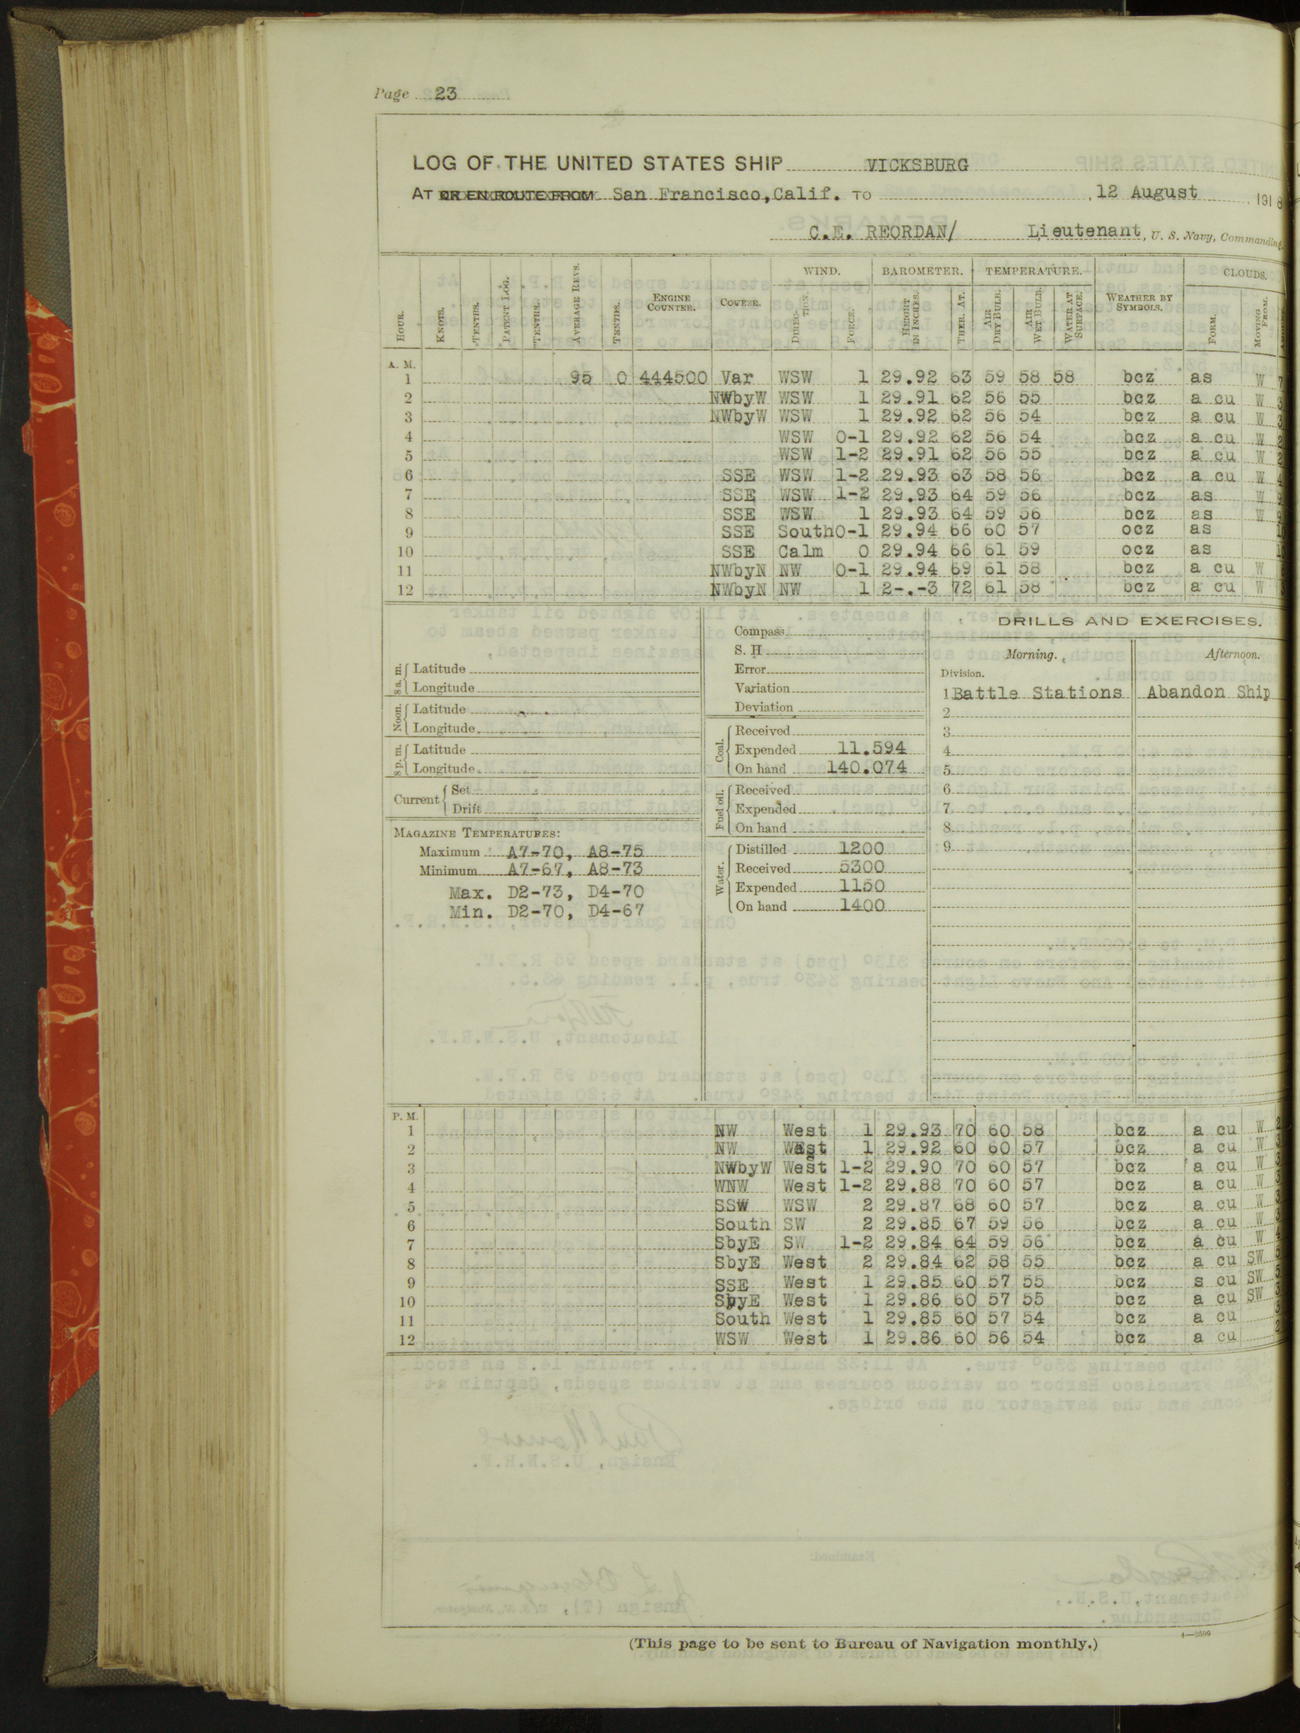 Page 23
LOG OF THE UNITED STATES SHIP VICKSBURG
AT OR EN ROUTE FROM San Francisco, Calif. TO , 12 August , 1918
C.E. REORDAN/ Lieutenant, U. S. Navy, Commanding.
HOUR. KNOTS. TENTHS. PATENT LOG. TENTHS. AVERAGE REVS. TENTHS. ENGINE COUNTER. COURSE. WIND. DIRECTION. FORCE. BAROMETER. HEIGHT IN INCHES. THER. AT. TEMPERATURE. AIR DRY BULB. AIR WET BULB. WATER AT SURFACE. WEATHER BY SYMBOLS. CLOUDS. FORM. MOVING FROM.
A. M.
1 95 0 444500 Var WSW 1 29.92 63 59 58 58 bcz as W 7
2 NWbyW WSW 1 29.91 62 56 55 bcz a cu W 3
3 NWbyW WSW 1 29.92 62 56 54 bcz a cu W
4 WSW 0-1 29.92 62 56 54 bcz a cu W
5 WSW 1-2 29.91 62 56 55 bcz a cu W
6 SSE WSW 1-2 29.93 63 58 56 bcz a cu W
7 SSE WSW 1-2 29.93 64 59 56 bcz as W
8 SSE WSW 1 29.93 64 59 56 bcz as W
9 SSE South 0-1 29.94 66 60 57 ocz as
10 SSE Calm 0 29.94 66 61 59 ocz as
11 NWbyN NW 0-1 29.94 69 61 58 bcz a cu W
12 NWbyN NW 1 2-.-3 72 61 58 bcz a cu W
8 a. m. Latitude
Longitude
Noon. Latitude
Longitude
8 p. m. Latitude
Longitude
Current Set
Drift
MAGAZINE TEMPERATURES:
Maximum A7-70, A8-75
Minimum A7-67, A8-73
Max. D2-73, D4-70
Min. D2-70, D4-67
Compass
S. H
Error
Variation
Deviation
Coal. Received
Expended 11.594
On hand 140.074
Fuel oil. Received
Expended
On hand
Water. Distilled 1200
Received 5300
Expended 1150
On hand 1400
DRILLS AND EXERCISES.
Morning. Afternoon.
Division.
1 Battle Stations Abandon Ship
2
3
4
5
6
7
8
9
P. M.
1 NW West 1 29.93 70 60 58 bcz a cu W
2 NW West 1 29.92 60 60 57 bcz a cu W
3 NWbyW West 1-2 29.90 70 60 57 bcz a cu W
4 WNW West 1-2 29.88 70 60 57 bcz a cu W
5 SSW WSW 2 29.87 68 60 57 bcz a cu W
6 South SW 2 29.85 67 59 56 bcz a cu W
7 SbyE SW 1-2 29.84 64 59 56 bcz a cu W
8 SbyE West 2 29.84 62 58 55 bcz a cu SW
9 SSE West 1 29.85 60 57 55 bcz s cu SW
10 SbyE West 1 29.86 60 57 55 bcz a cu SW
11 South West 1 29.85 60 57 54 bcz a cu
12 WSW West 1 29.86 60 56 54 bcz a cu
(This page to be sent to Bureau of Navigation monthly.)